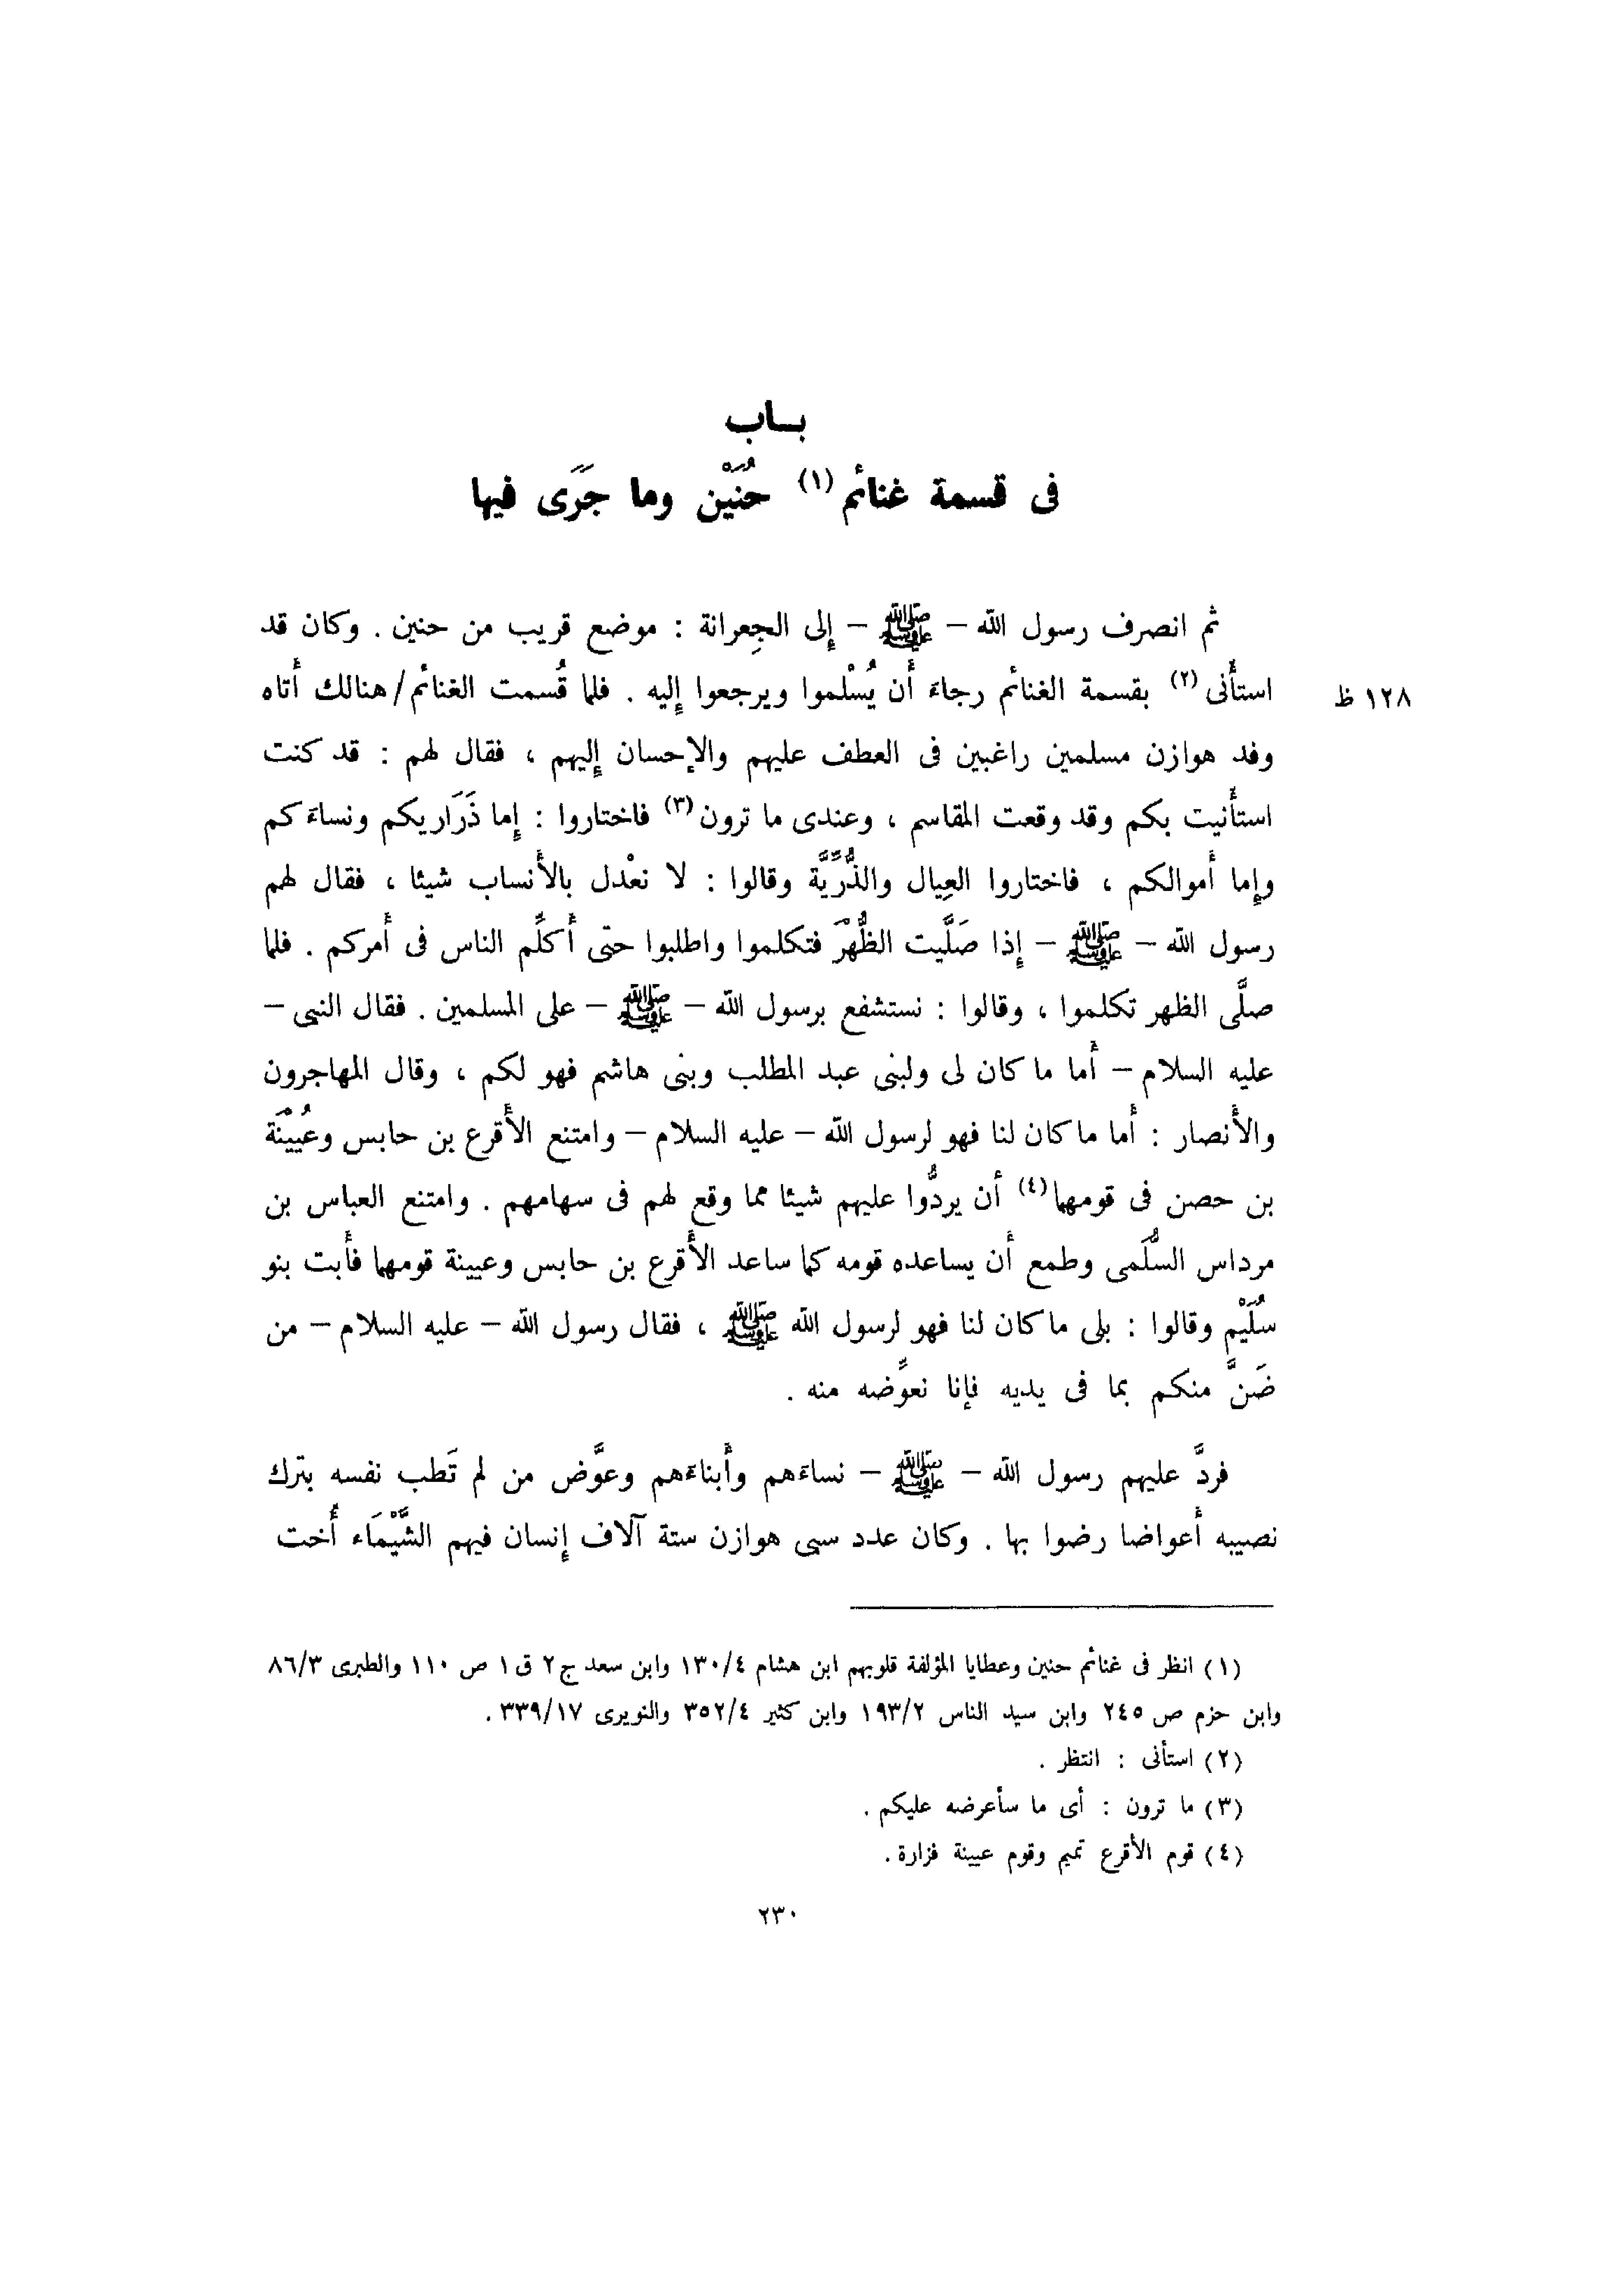 بــاب
فى قسمة غنائم (١) حُنَيْن وما جَرَى فيها
ثم انصرف رسول الله – ﷺ – إلى الجِعرانة : موضع قريب من حنين . وكان قد
استأنى (٢) بقسمة الغنائم رجاءَ أن يُسْلموا ويرجعوا إليه . فلما قُسمت الغنائم/هنالك أتاه
١٢٨ ظ
وفد هوازن مسلمين راغبين فى العطف عليهم والإحسان إليهم ، فقال لهم : قد كنت
استأنيت بكم وقد وقعت المقاسم ، وعندى ما ترون (٣) فاختاروا : إما ذَرَاريكم ونساءَكم
وإما أموالكم ، فاختاروا العِيال والذُّرِّيَّة وقالوا : لا نعْدل بالأنساب شيئا ، فقال لهم
رسول الله – ﷺ – إذا صَلَّيت الظُّهْرَ فتكلموا واطلبوا حتى أكلِّم الناس فى أمركم . فلما
صلَّى الظهر تكلموا ، وقالوا : نستشفع برسول الله – ﷺ – على المسلمين . فقال النبى –
عليه السلام – أما ما كان لى ولبنى عبد المطلب وبنى هاشم فهو لكم ، وقال المهاجرون
والأنصار : أما ما كان لنا فهو لرسول الله – عليه السلام – وامتنع الأقرع بن حابس وعُيَيْنَة
بن حصن فى قومهما (٤) أن يردُّوا عليهم شيئا مما وقع لهم فى سهامهم . وامتنع العباس بن
مرداس السُّلَمى وطمع أن يساعده قومه كما ساعد الأقرع بن حابس وعيينة قومهما فأبت بنو
سُلَيْم وقالوا : بلى ما كان لنا فهو لرسول الله ﷺ ، فقال رسول الله – عليه السلام – من
ضَنَّ منكم بما فى يديه فإنا نعوِّضه منه .
فردَّ عليهم رسول الله – ﷺ – نساءَهم وأبناءَهم وعوَّض من لم تَطب نفسه بترك
نصيبه أعواضا رضوا بها . وكان عدد سبى هوازن ستة آلاف إنسان فيهم الشَّيْمَاء أُخت
(١) انظر فى غنائم حنين وعطايا المؤلفة قلوبهم ابن هشام ١٣٠/٤ وابن سعد ج ٢ ق ١ ص ١١٠ والطبرى ٨٦/٣
وابن حزم ص ٢٤٥ وابن سيد الناس ١٩٣/٢ وابن كثير ٣٥٢/٤ والنويرى ٣٣٩/١٧ .
(٢) استأنى : انتظر .
(٣) ما ترون : أى ما سأعرضه عليكم .
(٤) قوم الأقرع تميم وقوم عيينة فزارة .
٢٣٠